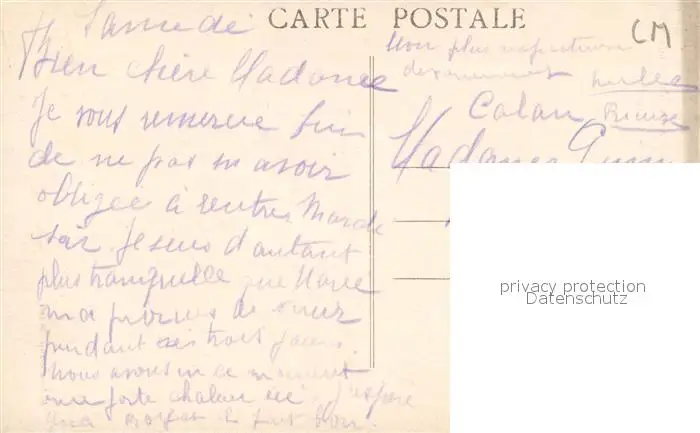 Samedi
CARTE POSTALE
CM
Bien chère Madame
Mon plus respectueux
Je vous remercie bien
de ne pas m avoir
obligée à rentrer Mardi
soir. Je suis d autant
plus tranquille que Marie
m a promis de venir
pendant ces trois jours.
Nous avons en ce moment
une forte chaleur ici. J espère
Calan
Madame
privacy protection
Datenschutz